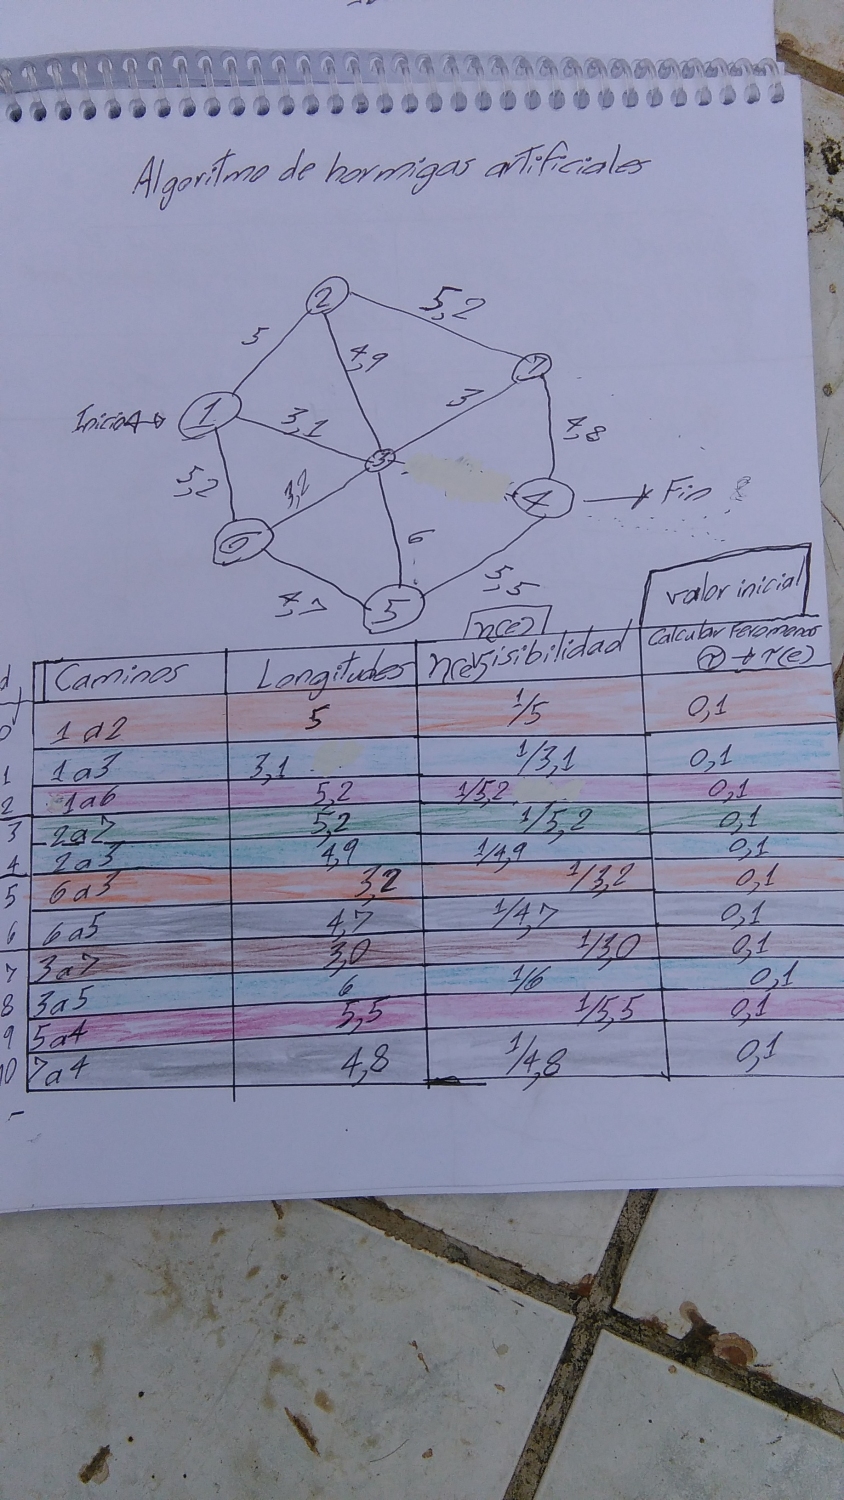 Algoritmo de hormigas artificiales
2
5,2
5
4,9
7
1
3
Inicio
3,1
4,8
3
5,2
3,2
4
Fin
6
6
4,7
5
5,5
n(e)
valor inicial
Caminos Longitudes n(e) Visibilidad Calcular Feromonas
τ → τ(e)
0 1 a 2 5 1/5 0,1
1 1 a 3 3,1 1/3,1 0,1
2 1 a 6 5,2 1/5,2 0,1
3 2 a 7 5,2 1/5,2 0,1
4 2 a 3 4,9 1/4,9 0,1
5 6 a 3 3,2 1/3,2 0,1
6 6 a 5 4,7 1/4,7 0,1
7 3 a 7 3,0 1/3,0 0,1
8 3 a 5 6 1/6 0,1
9 5 a 4 5,5 1/5,5 0,1
10 7 a 4 4,8 1/4,8 0,1